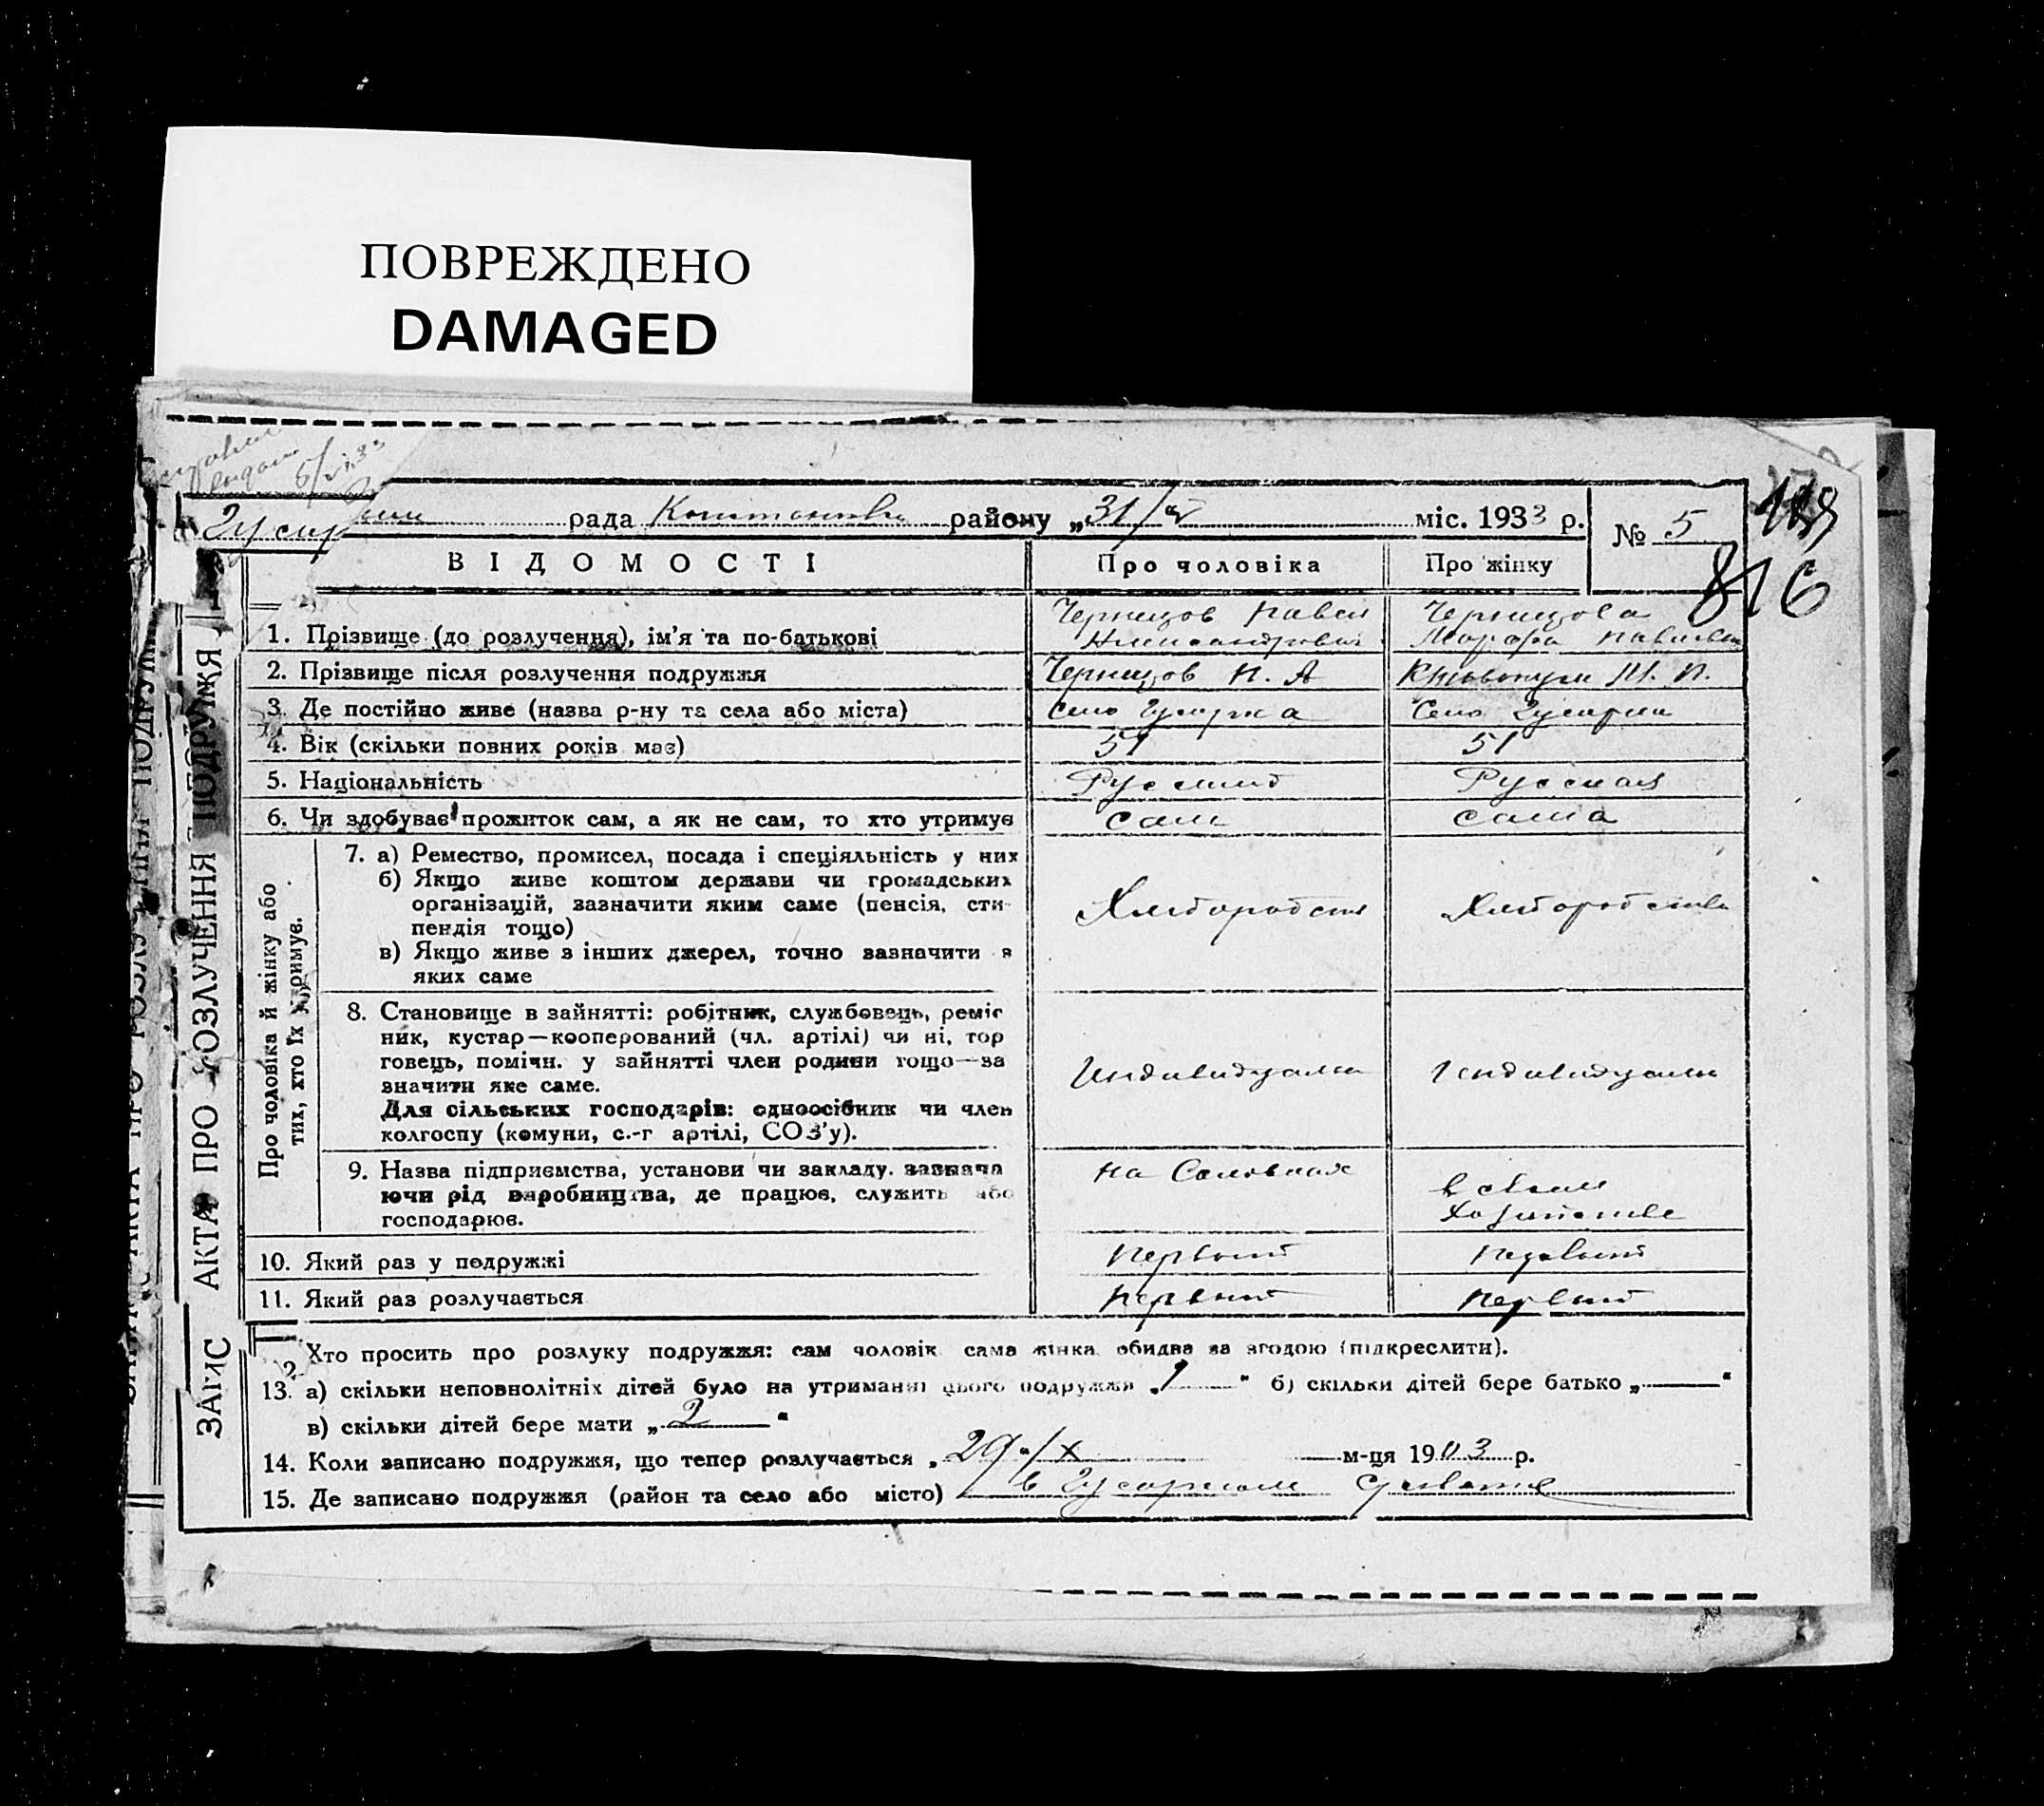 ПОВРЕЖДЕНО
DAMAGED
рада районy „31/V міс. 1933 р.
№ 5
816
ЗАПИС АКТА ПРО РОЗЛУЧЕННЯ ПОДРУЖЖЯ
ВІДОМОСТІ Про чоловіка Про жінку
1. Прізвище (до розлучення), ім'я та по-батькові
Чернецов Павел
Александрович
Чернецова
Марфа Павловна
2. Прізвище після розлучення подружжя Чернецов П. А М. П.
3. Де постійно живе (назва р-ну та села або міста) Село Село
4. Вік (скільки повних років має) 51 51
5. Національність Русский Русская
6. Чи здобуває прожиток сам, а як не сам, то хто утримує Сам Сама
Про чоловіка й жінку або
тих, хто їх утримує.
7. а) Ремество, промисел, посада і спеціяльність у них
б) Якщо живе коштом держави чи громадських
організацій, зазначити яким саме (пенсія, сти-
пендія тощо)
в) Якщо живе з інших джерел, точно зазначити з
яких саме
8. Становище в зайнятті: робітник, службовець, реміс
ник, кустар—кооперований (чл. артілі) чи ні, тор
говець, помічн. у зайнятті член родини тощо—за
значити яке саме.
Для сільських господарів: одноосібник чи член
колгоспу (комуни, с.-г артілі, СОЗ'у).
9. Назва підприємства, установи чи закладу. зазнача
ючи рід виробництва, де працює, служить або
господарює.
на
в своем
хозяйстве
10. Який раз у подружжі первый первый
11. Який раз розлучається первый первый
12. Хто просить про розлуку подружжя: сам чоловік сама жінка обидва за згодою (підкреслити).
13. а) скільки неповнолітніх дітей було на утриманні цього подружжя „1“ б) скільки дітей бере батько „—“
в) скільки дітей бере мати „2“
14. Коли записано подружжя, що тепер розлучається „29“/X м-ця 1903 р.
15. Де записано подружжя (район та село або місто) в